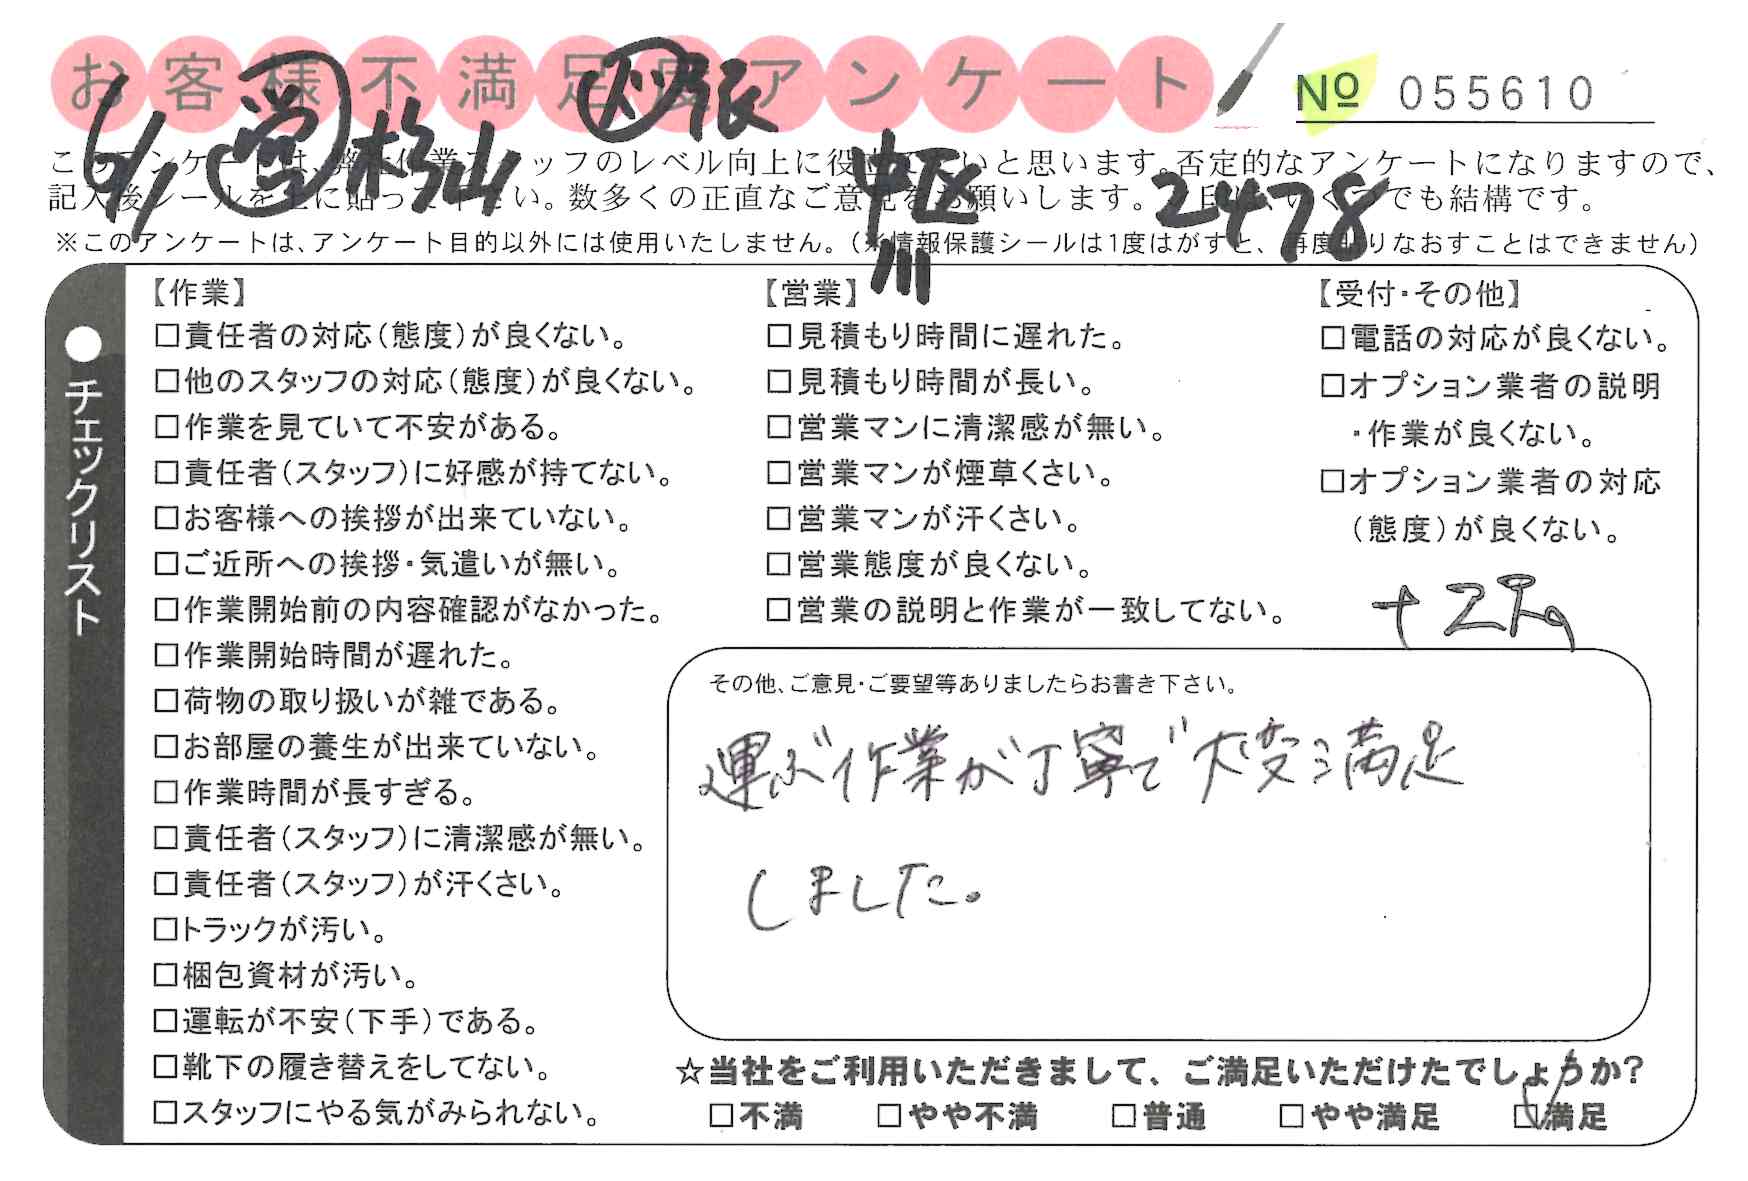 お客様不満足度アンケート
№ 055610
6/1 杉山
中区
2478
このアンケートは、弊社作業スタッフのレベル向上に役立てたいと思います。否定的なアンケートになりますので、
記入後シールを上に貼って下さい。数多くの正直なご意見をお願いします。✓印は、いくつでも結構です。
※このアンケートは、アンケート目的以外には使用いたしません。（※情報保護シールは1度はがすと、再度貼りなおすことはできません）
●チェックリスト
【作業】
□責任者の対応（態度）が良くない。
□他のスタッフの対応（態度）が良くない。
□作業を見ていて不安がある。
□責任者（スタッフ）に好感が持てない。
□お客様への挨拶が出来ていない。
□ご近所への挨拶・気遣いが無い。
□作業開始前の内容確認がなかった。
□作業開始時間が遅れた。
□荷物の取り扱いが雑である。
□お部屋の養生が出来ていない。
□作業時間が長すぎる。
□責任者（スタッフ）に清潔感が無い。
□責任者（スタッフ）が汗くさい。
□トラックが汚い。
□梱包資材が汚い。
□運転が不安（下手）である。
□靴下の履き替えをしてない。
□スタッフにやる気がみられない。
【営業】
□見積もり時間に遅れた。
□見積もり時間が長い。
□営業マンに清潔感が無い。
□営業マンが煙草くさい。
□営業マンが汗くさい。
□営業態度が良くない。
□営業の説明と作業が一致してない。
【受付・その他】
□電話の対応が良くない。
□オプション業者の説明
・作業が良くない。
□オプション業者の対応
（態度）が良くない。
その他、ご意見・ご要望等ありましたらお書き下さい。
運ぶ作業が丁寧で大変満足
しました。
☆当社をご利用いただきまして、ご満足いただけたでしょうか？
□不満 □やや不満 □普通 □やや満足 ☑満足